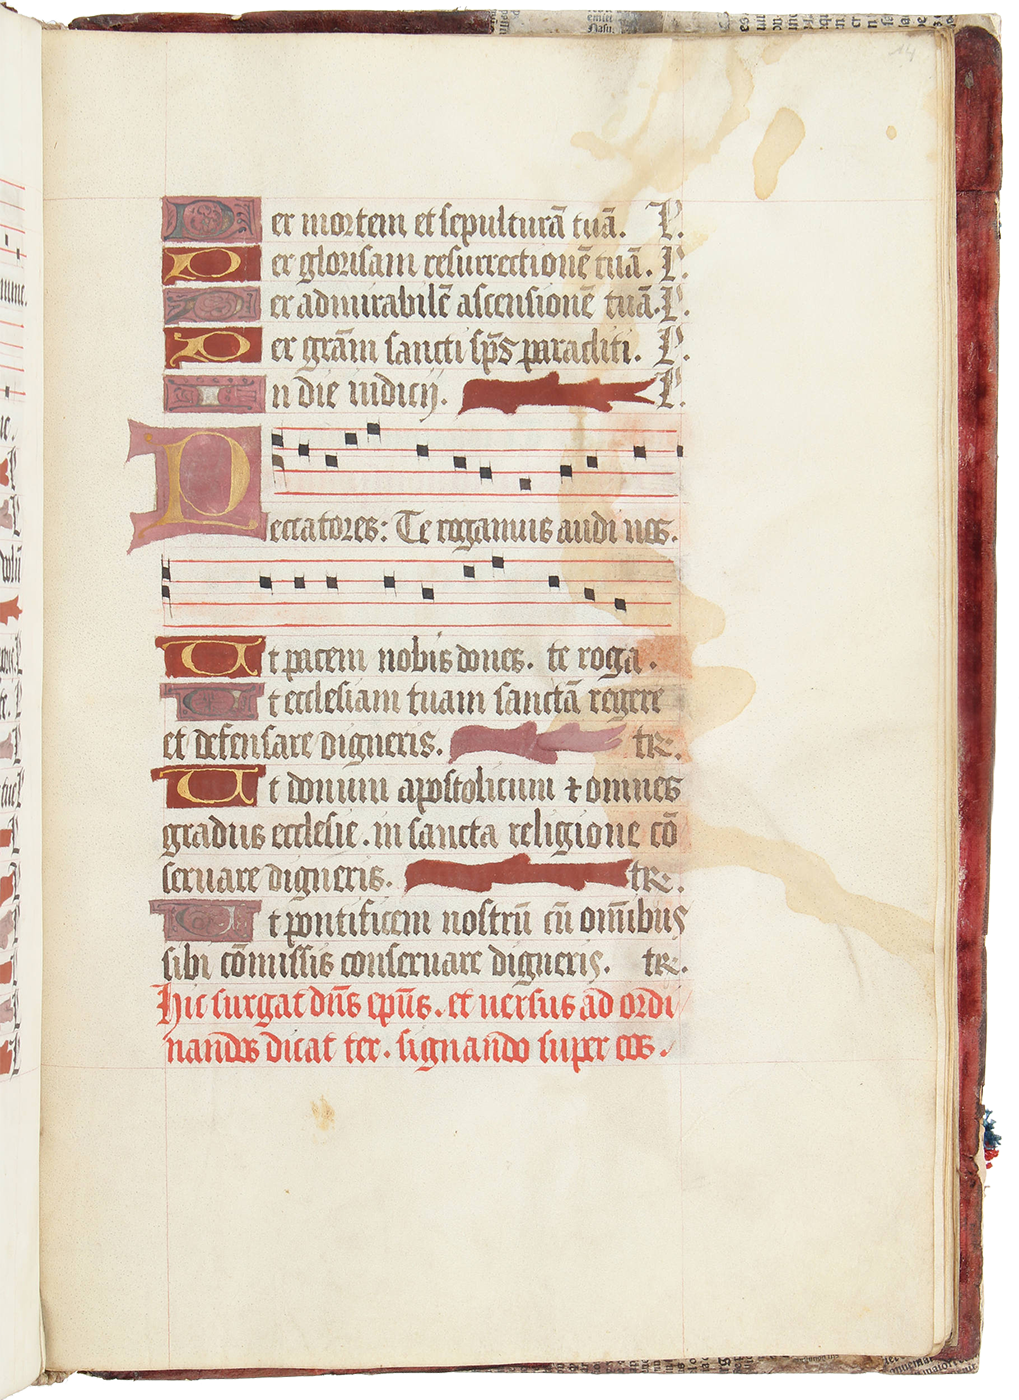 14
Per mortem et sepulturā tuā. P.
Per gloriosam resurrectionē tuā. P.
Per admirabilē ascensionē tuā. P.
Per grām sancti sp̄s paracliti. P.
In die iudicij. P.
Peccatores: Te rogamus audi nos.
Ut pacem nobis dones. te roga.
Ut ecclesiam tuam sanctā regere
et defensare digneris. tR.
Ut domum apostolicum ⁊ omnes
gradus ecclesie. in sancta religione cō
seruare digneris. tR.
Ut pontificem nostrū cū om̄ibus
sibi cōmissis conseruare digneris. tR.
Hic surgat dn̄s ep̄us. et uersus ad ordi
nandos dicat ter. signando super eos.